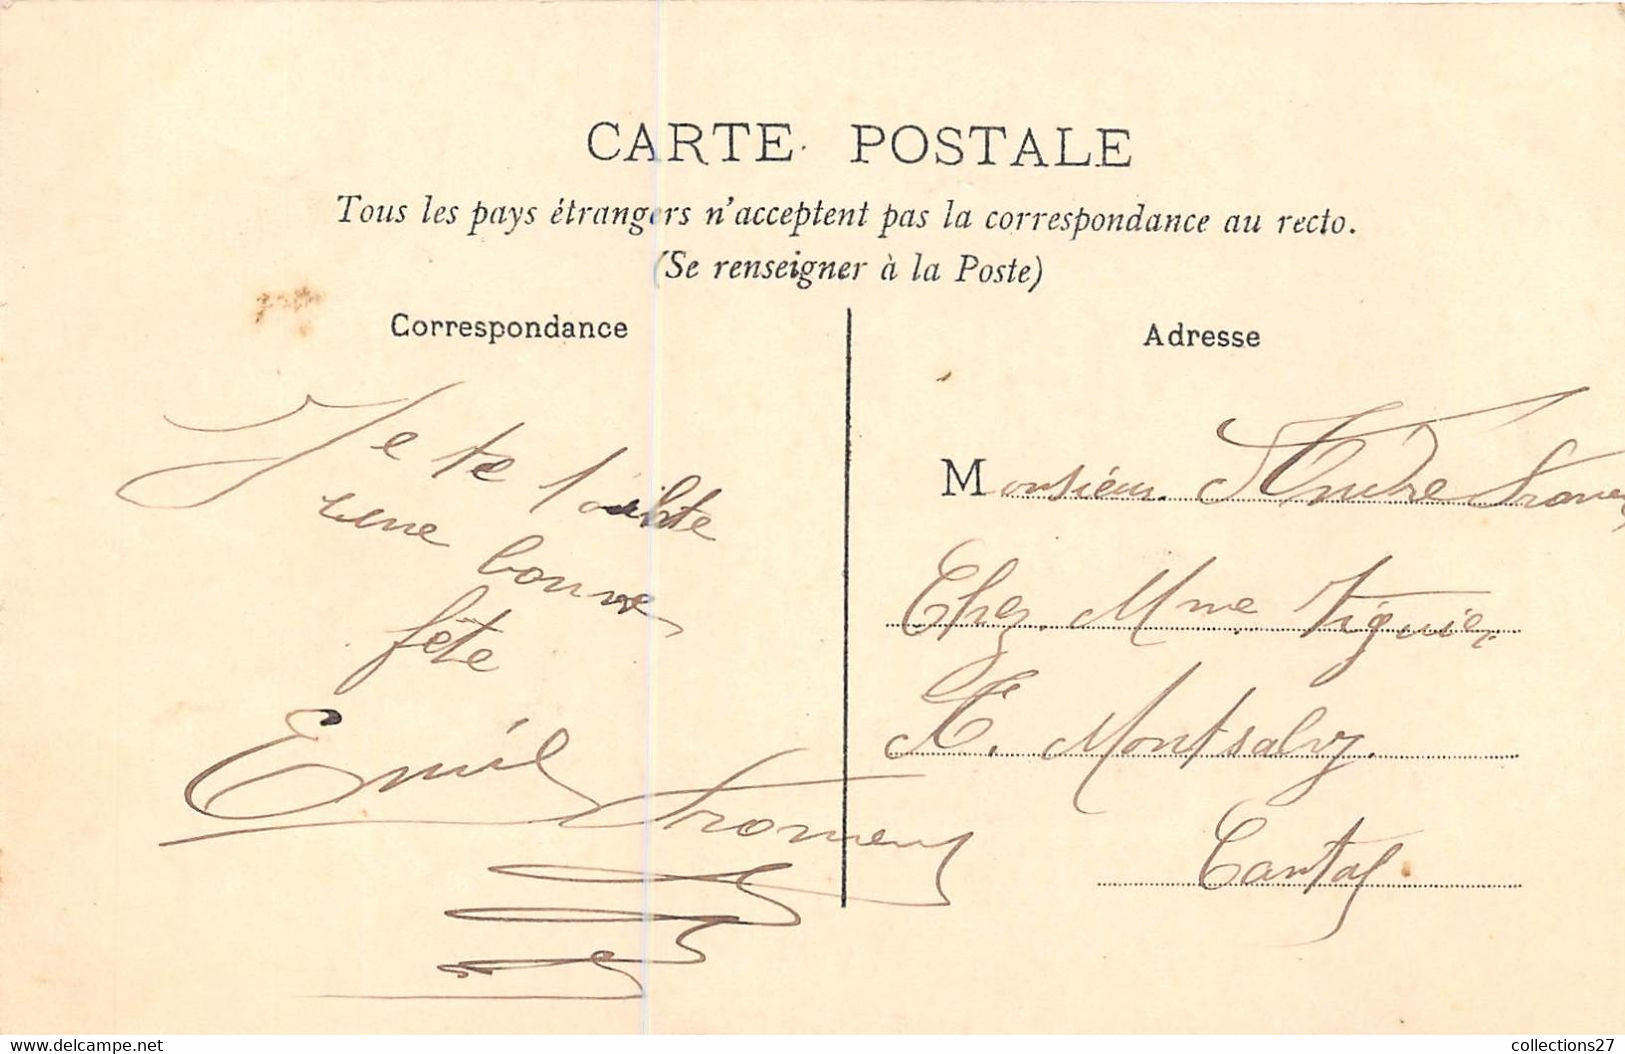 CARTE POSTALE
Tous les pays étrangers n'acceptent pas la correspondance au recto.
(Se renseigner à la Poste)
Correspondance
Je te
une bonne
fête
Emil
Adresse
Monsieur André
Chez Mme Viguier
A. Montsalvy.
Cantal
www.delcampe.net
collections27